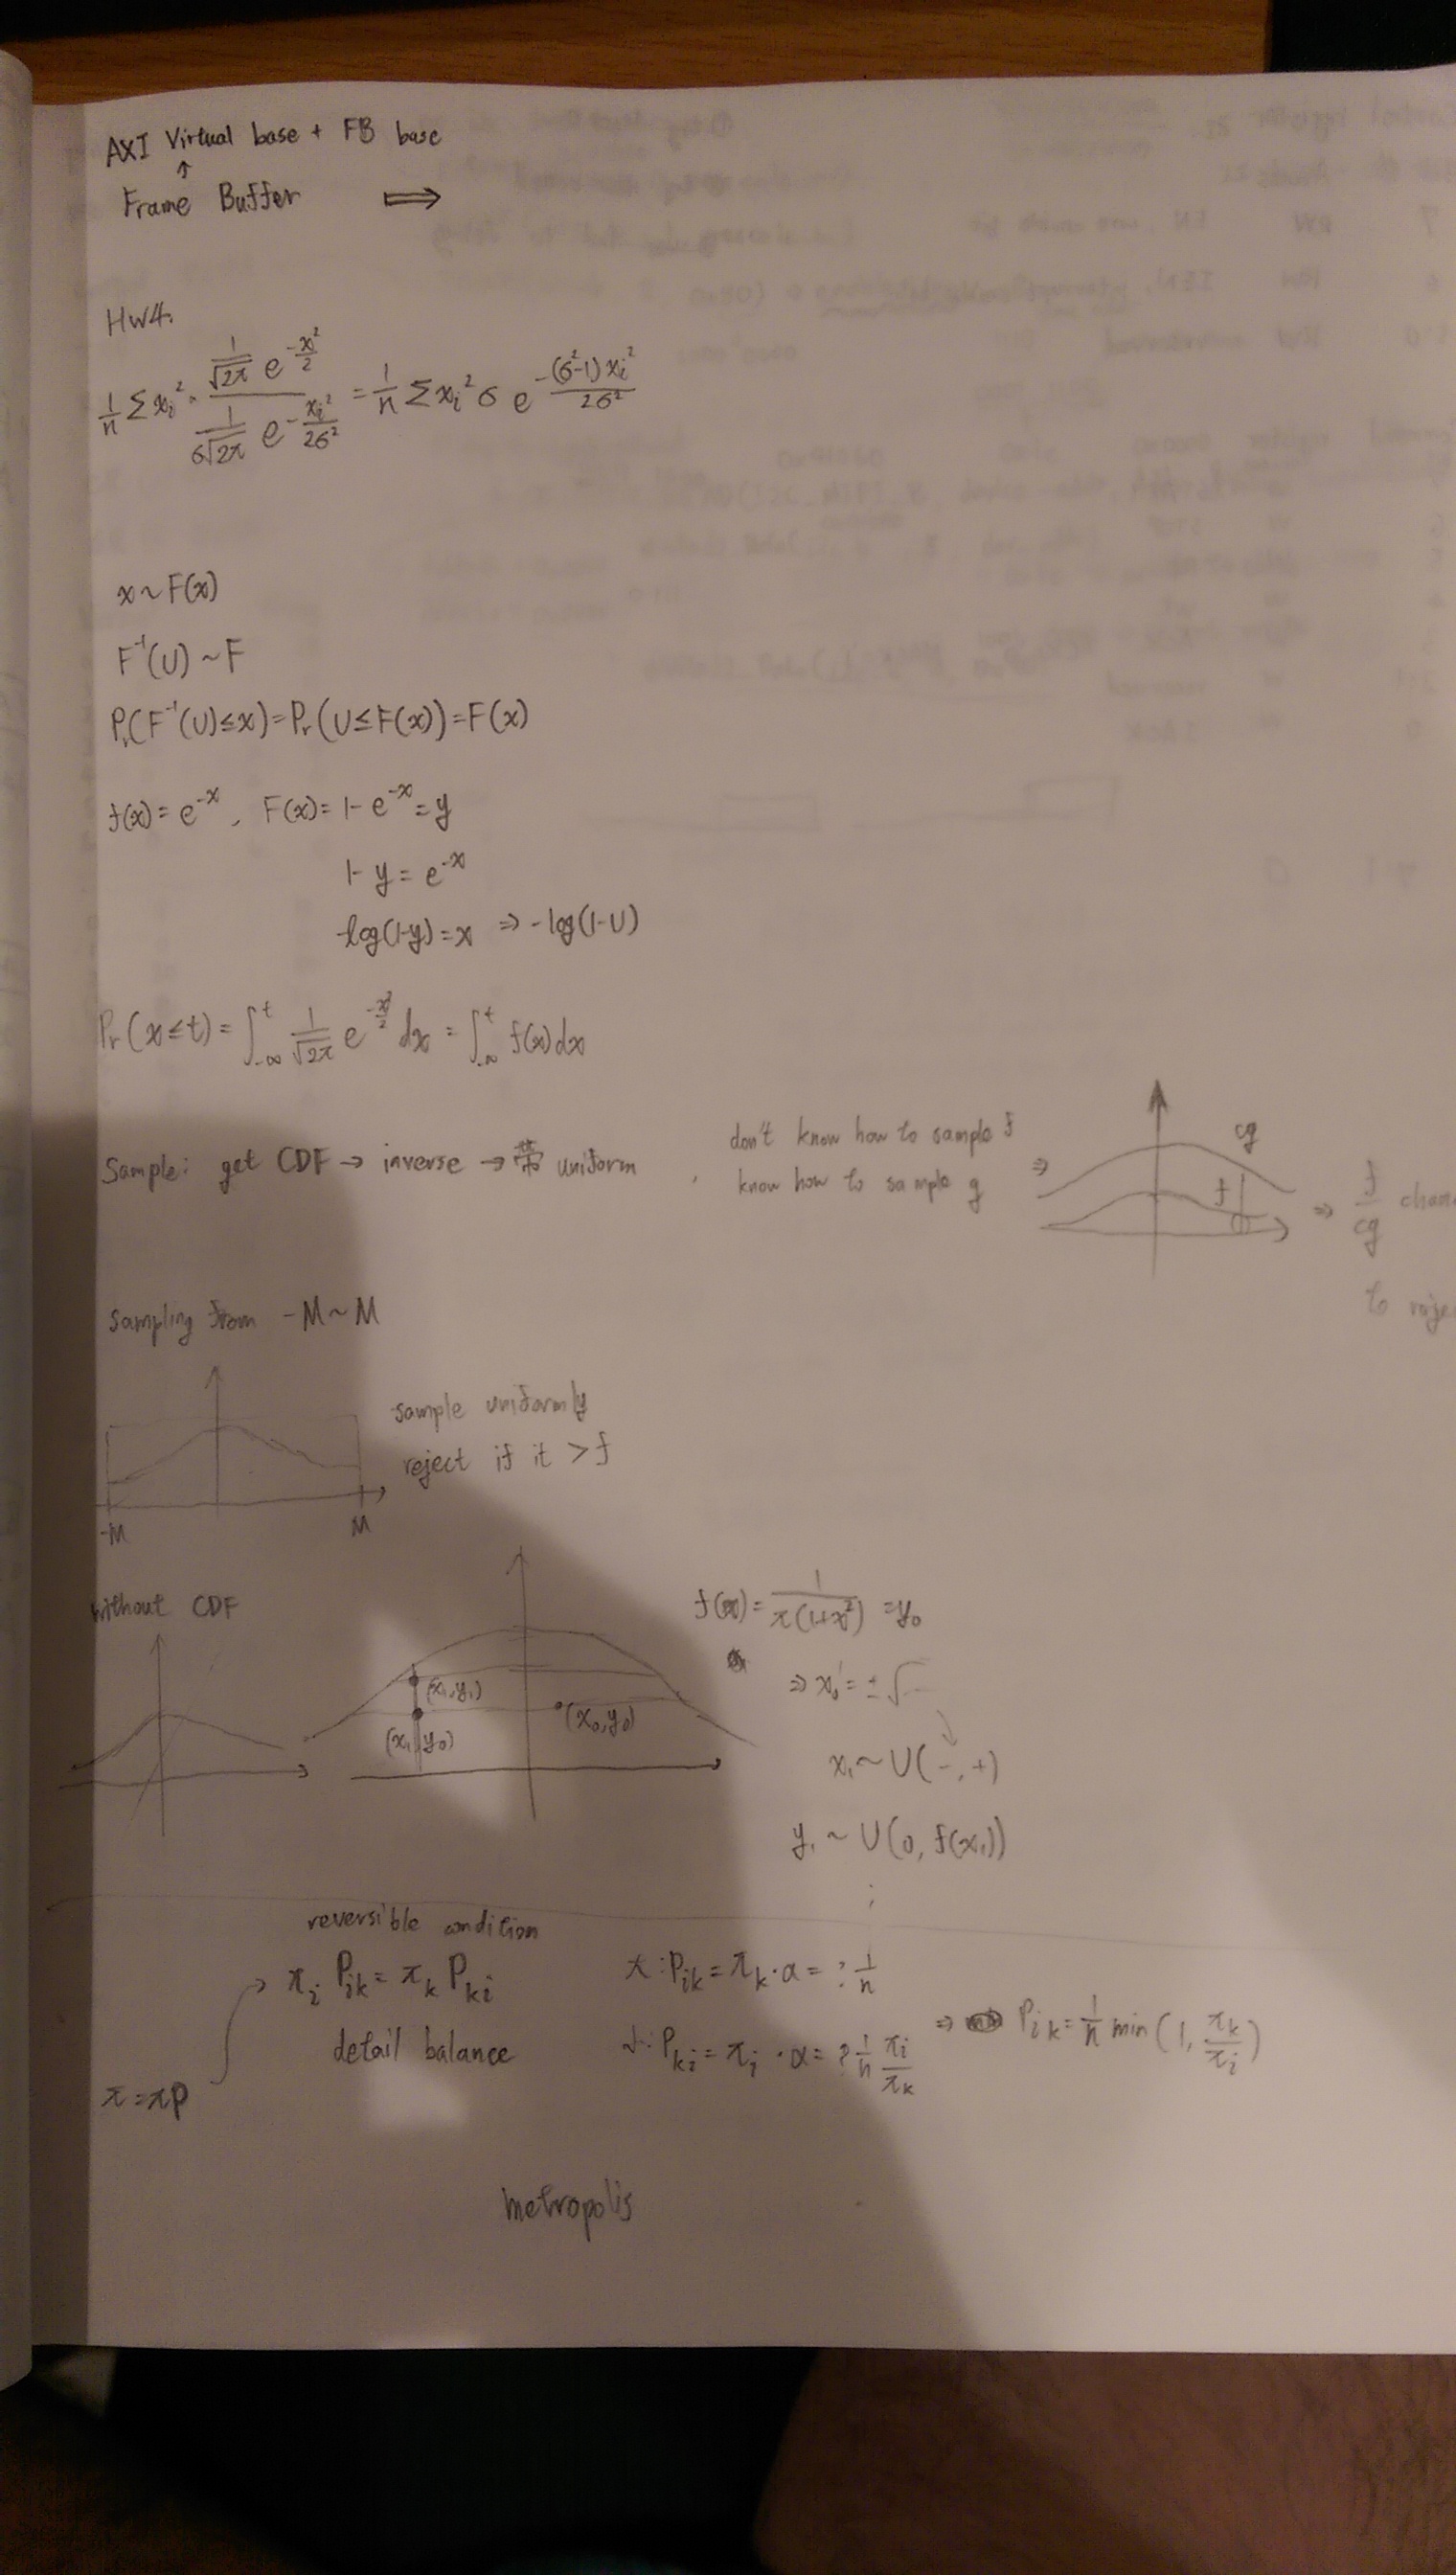 AXI Virtual base + FB base
↑
Frame Buffer ⟹
HW4.
1/n Σ xi² · (1/√2π e^(-xi²/2)) / (1/(σ√2π) e^(-xi²/2σ²)) = 1/n Σ xi² σ e^(-(σ²-1)xi²/2σ²)
x ~ F(x)
F⁻¹(U) ~ F
Pr(F⁻¹(U) ≤ x) = Pr(U ≤ F(x)) = F(x)
f(x) = e^(-x), F(x) = 1 - e^(-x) = y
1 - y = e^(-x)
-log(1-y) = x ⇒ -log(1-U)
Pr(x ≤ t) = ∫_{-∞}^{t} 1/√2π e^(-x²/2) dx = ∫_{-∞}^{t} f(x) dx
Sample: get CDF → inverse → 帶 uniform,
don't know how to sample f
know how to sample g
⇒
cg
f
⇒ f/cg
to
Sampling from -M ~ M
sample uniformly
reject if it > f
-M
M
without CDF
(x₁, y₁)
(x₁, y₀)
(x₀, y₀)
f(x) = 1/(π(1+x²)) = y₀
⇒ x₀' = ±√
x₁ ~ U(-, +)
y₁ ~ U(0, f(x₁))
⋮
reversible condition
πi Pik = πk Pki
detail balance
π = πP
大: Pik = πk · α = ? 1/n
小: Pki = πi · α = ? 1/n πi/πk
⇒ Pik = 1/n min(1, πk/πi)
metropolis